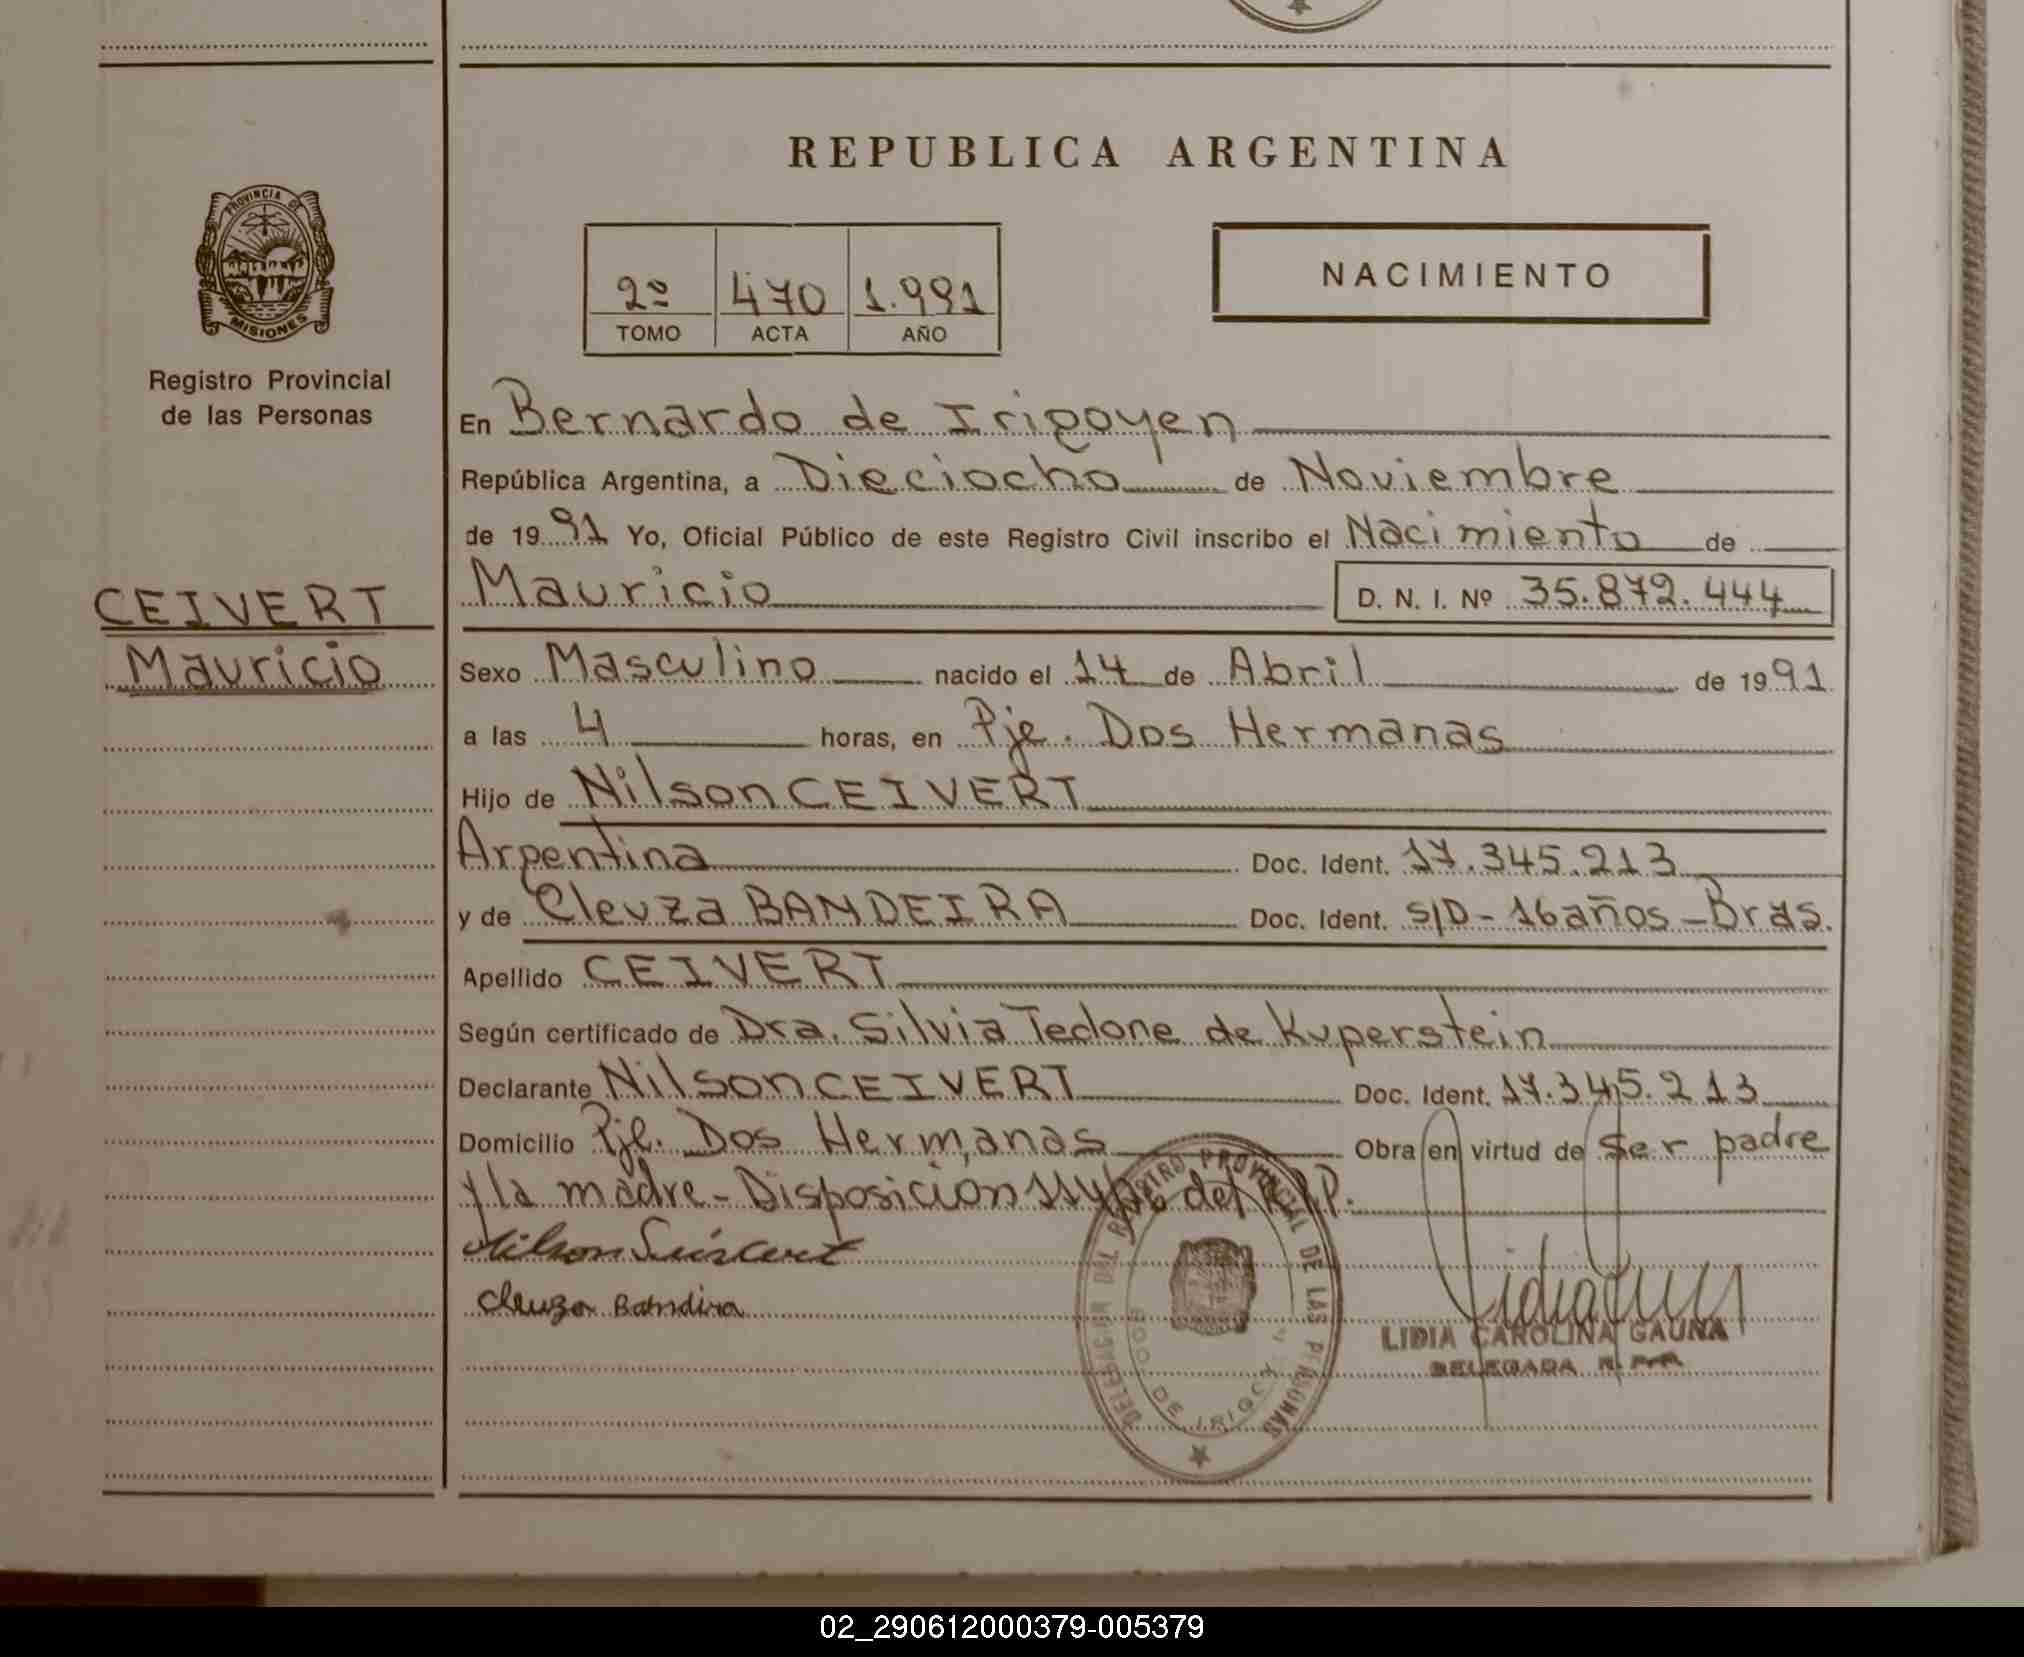 REPUBLICA ARGENTINA
PROVINCIA DE
MISIONES
Registro Provincial
de las Personas
2º 470 1.991
TOMO ACTA AÑO
NACIMIENTO
En Bernardo de Irigoyen
República Argentina, a Dieciocho de Noviembre
de 1991 Yo, Oficial Público de este Registro Civil inscribo el Nacimiento de
CEIVERT
Mauricio
Mauricio D. N. I. Nº 35.872.444
Sexo Masculino nacido el 14 de Abril de 1991
a las 4 horas, en Pje. Dos Hermanas
Hijo de Nilson CEIVERT
Argentina Doc. Ident. 17.345.213
y de Cleuza BANDEIRA Doc. Ident. S/D - 16 años - Bras.
Apellido CEIVERT
Según certificado de Dra. Silvia Tedone de Kuperstein
Declarante Nilson CEIVERT Doc. Ident. 17.345.213
Domicilio Pje. Dos Hermanas Obra en virtud de Ser padre
y la madre - Disposición del
Nilson
Cleuza Bandira
DELEGACION DEL REGISTRO PROVINCIAL DE LAS PERSONAS
DE IRIGOYEN
LIDIA CAROLINA GAUNA
DELEGADA R. P. P.
02_290612000379-005379